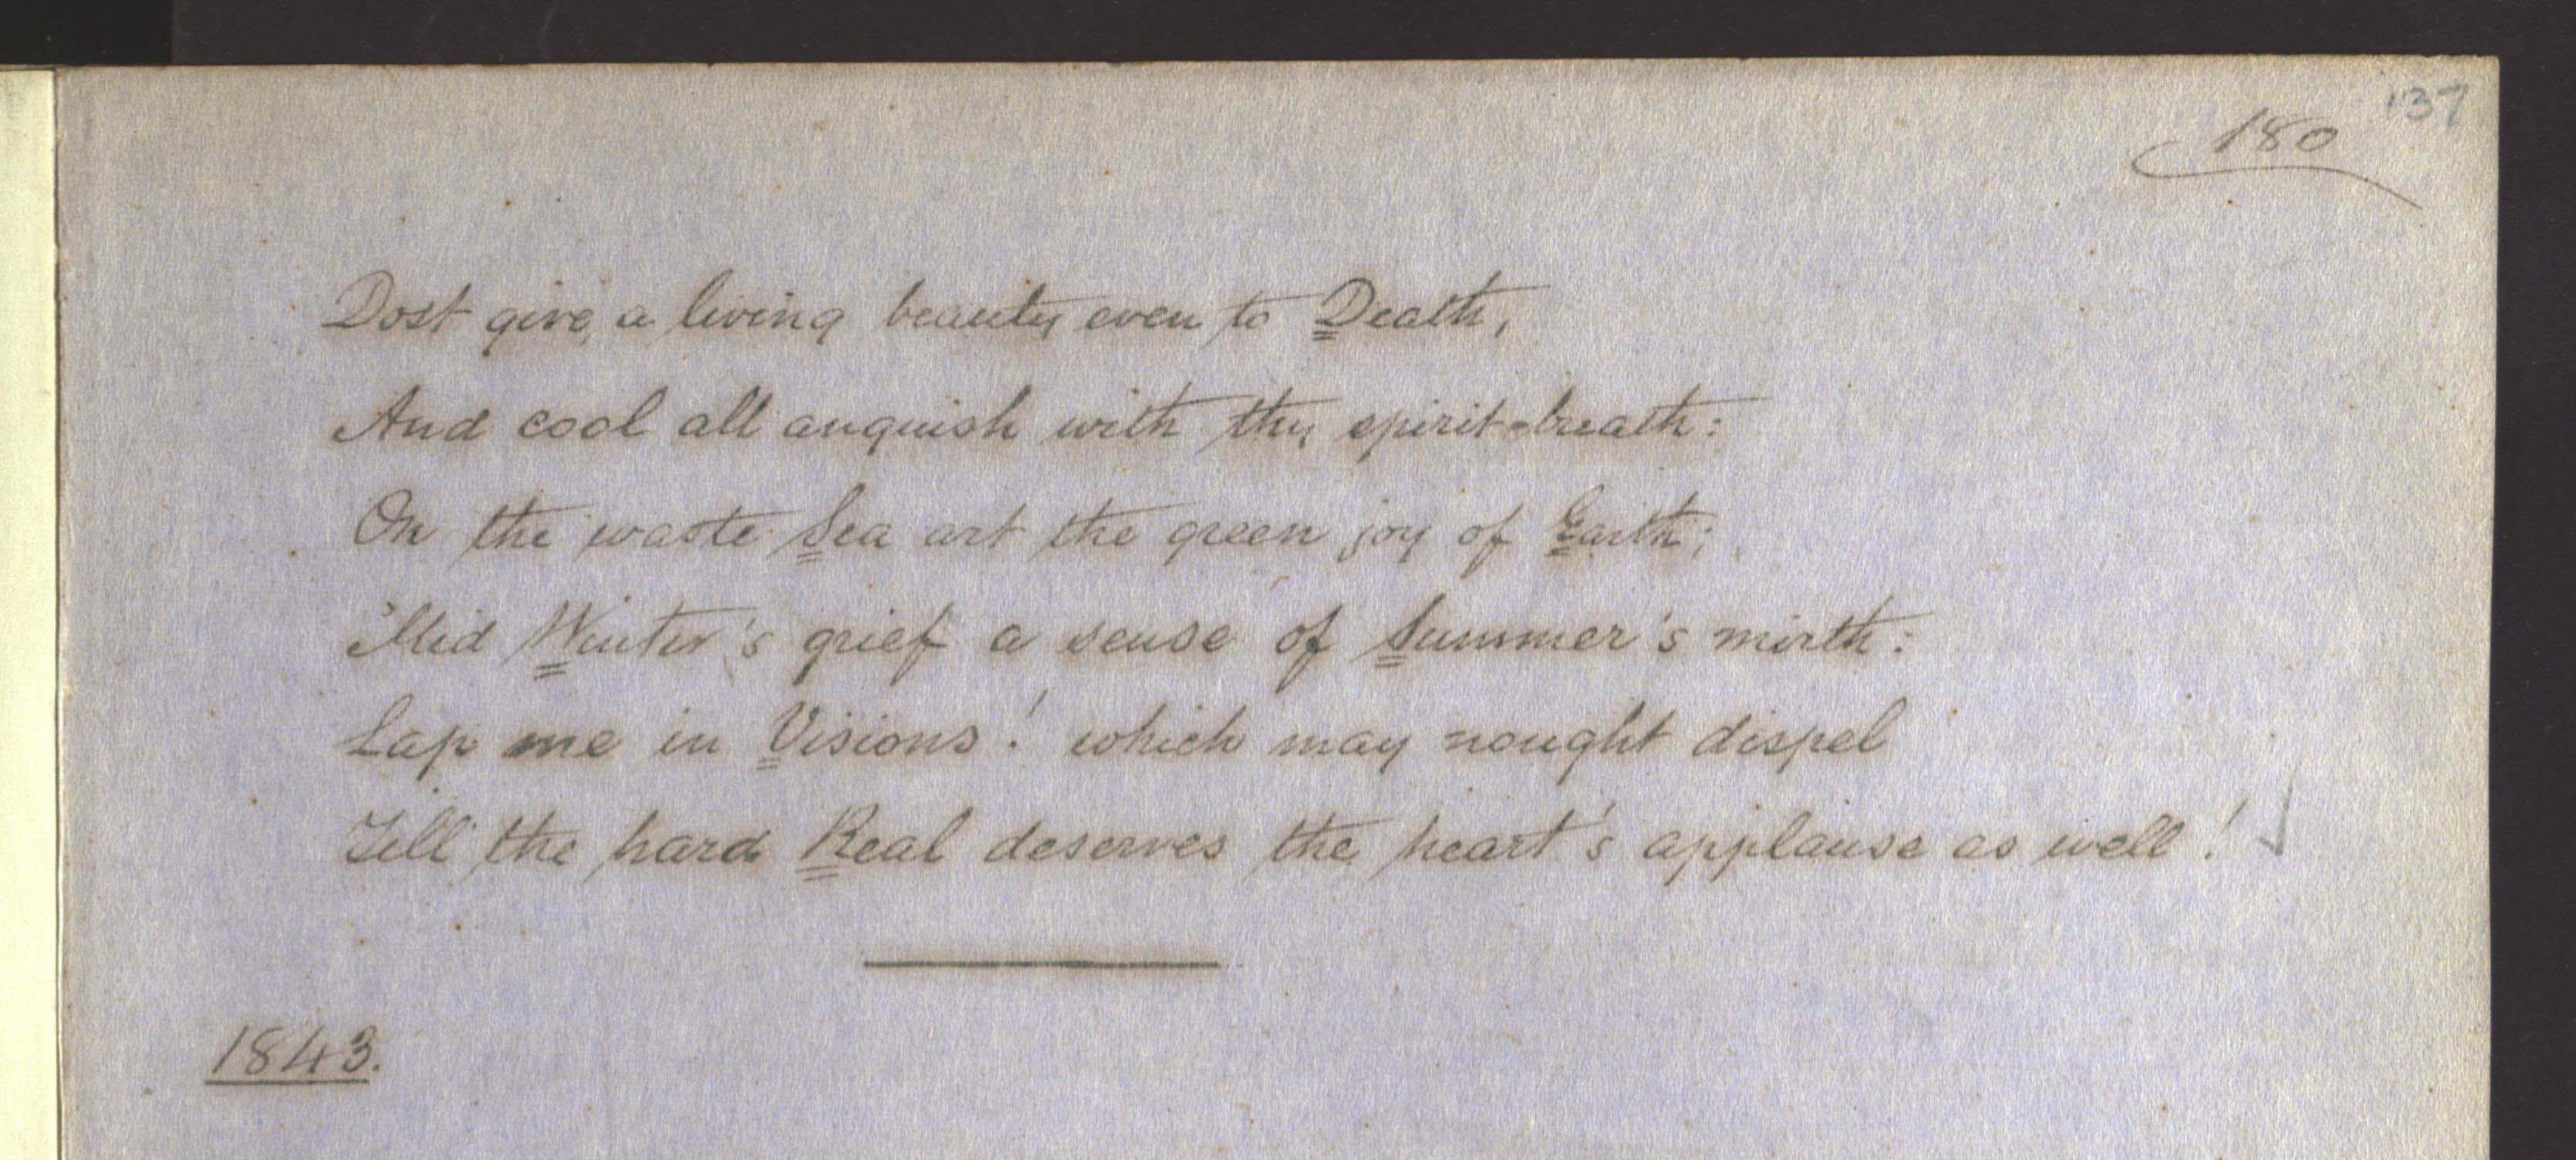 137
180
Dost give a living beauty even to Death,
And cool all anguish with thy spirit-breath:
On the waste Sea art the green joy of Earth;
'Mid Winter's grief a sense of Summer's mirth:
Lap me in Visions! which may nought dispel
Till the hard Real deserves the heart's applause as well!
1843.